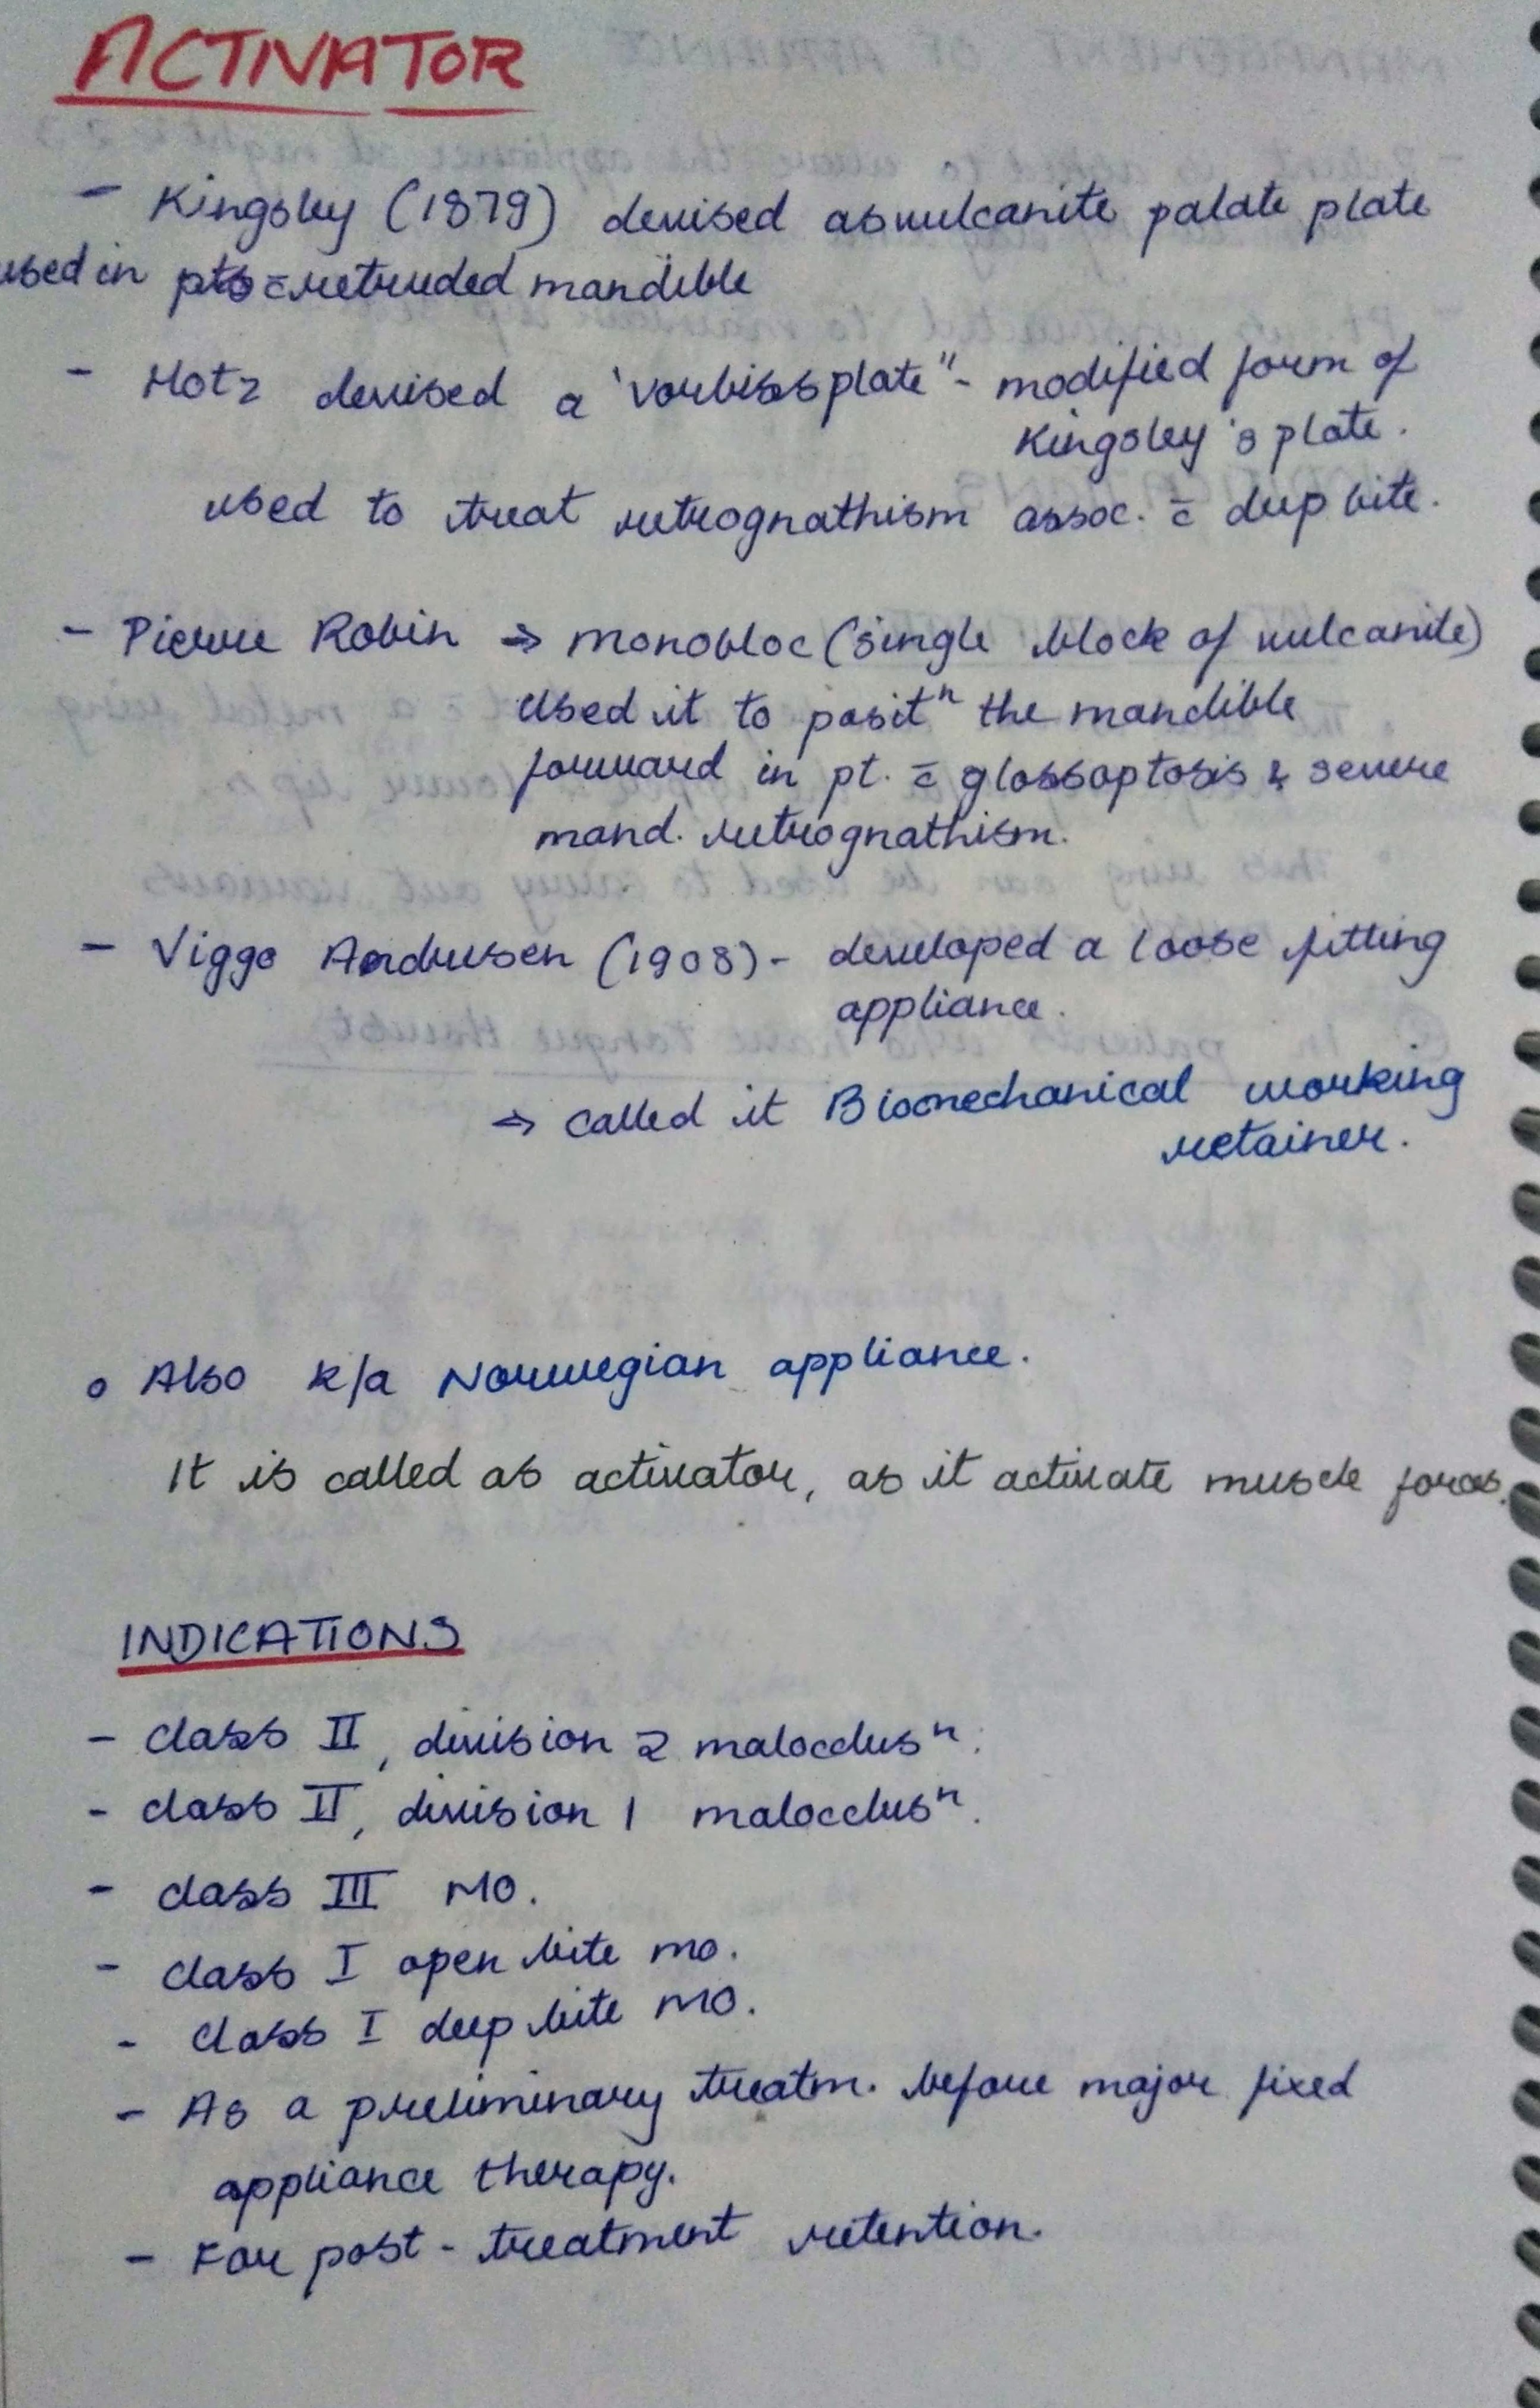 ACTIVATOR
- Kingsley (1879) devised as vulcanite palate plate
used in pts c̄ retruded mandible
- Hotz devised a 'vorbissplate"- modified form of
Kingsley's plate.
used to treat retrognathism assoc. c̄ deep bite.
- Pierre Robin ⇒ monobloc (single block of vulcanite)
used it to positⁿ the mandible
forward in pt. c̄ glossoptosis & severe
mand. retrognathism.
- Viggo Andresen (1908)- developed a loose fitting
appliance.
⇒ called it Biomechanical working
retainer.
o Also k/a Norwegian appliance.
It is called as activator, as it activate muscle forces.
INDICATIONS
- class II, division 2 malocclusⁿ.
- class II, division 1 malocclusⁿ.
- class III MO.
- class I open bite mo.
- class I deep bite MO.
- As a preliminary treatm. before major fixed
appliance therapy.
- For post-treatment retention.